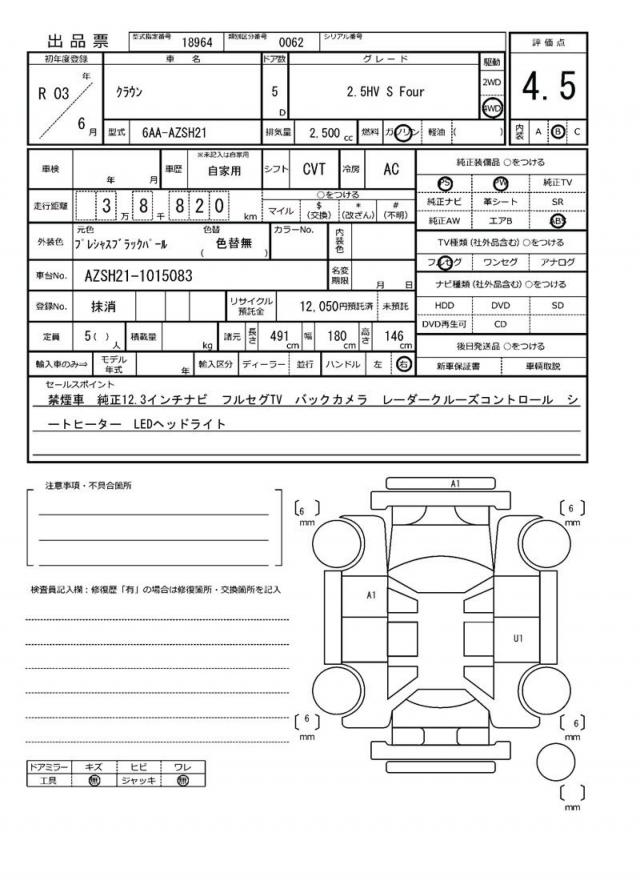 出品票 型式指定番号 18964 類別区分番号 0062 シリアル番号
評価点
4.5
初年度登録 車名 ドア数 グレード 駆動
R 03 年 6 月 クラウン 5 D 2.5HV S Four 2WD 4WD
型式 6AA-AZSH21 排気量 2,500 cc 燃料 ガソリン 軽油 ( ) 内装 A B C
車検 年 月 車歴 ※未記入は自家用 自家用 シフト CVT 冷房 AC
走行距離 3 万 8 千 8 2 0 km
○をつける
マイル $ (交換) * (改ざん) # (不明)
外装色 元色 プレシャスブラックパール 色替 ( 色替無 ) カラーNo. 内装色
車台No. AZSH21-1015083 名変期限 月 日
登録No. 抹消 リサイクル預託金 12,050円預託済 未預託
定員 5( ) 人 積載量 kg 諸元 長さ 491 cm 幅 180 cm 高さ 146 cm
輸入車のみ⇒ モデル年式 年 輸入区分 ディーラー 並行 ハンドル 左 右
純正装備品 ○をつける
PS PW 純正TV
純正ナビ 革シート SR
純正AW エアB ABS
TV種類(社外品含む)○をつける
フルセグ ワンセグ アナログ
ナビ種類(社外品含む)○をつける
HDD DVD SD
DVD再生可 CD
後日発送品 ○をつける
新車保証書 車輌取説
セールスポイント
禁煙車 純正12.3インチナビ フルセグTV バックカメラ レーダークルーズコントロール シ
ートヒーター LEDヘッドライト
注意事項・不具合箇所
検査員記入欄:修復歴「有」の場合は修復箇所・交換箇所を記入
A1
〔6 〕 mm 〔6 〕 mm
A1
U1
〔6 〕 mm 〔6 〕 mm
〔 〕 mm
ドアミラー キズ ヒビ ワレ
工具 無 ジャッキ 無